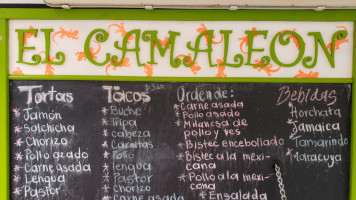 EL CAMALEON
Tortas
* Jamón
* Salchicha
* Chorizo
* Pollo asado
* Carne asada
* Lengua
* Pastor
Tacos
* Buche
* Tripa
* cabeza
* Carnitas
* Pollo
* lengua
* Pastor
* chorizo
* Carne asada
Ordende:
* Carne asada
* Pollo asado
* Milanesa de
pollo y res
* Bistec encebollado
* Bistec a la mexi-
cana
* Pollo a la mexi-
cana
* Ensalada
Bebidas
* Horchata
* Jamaica
* Tamarindo
* Maracuya